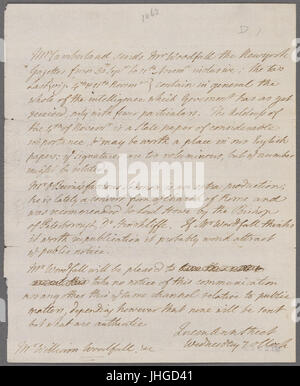 1062
D
Mr Cumberland sends Mr Woodfall the New York
Gazettes from 30th Sept to 11th Novemr inclusive; The two
last, viz 4th & 11th Novemr contain in general the
whole of the intelligence which Government has as yet
received, only with fewer particulars. The
of the 4th of Novemr is a State paper of considerable
importance & may be worth a place in our English
papers; if signatures are too voluminous, but a number
might be stated.
Mr production;
he is lately a convert from of Rome and
was recommended to Lord Howe by the Bishop
of Peterborough, Dr Hinchliffe. If Mr Woodfall thinks
it worth republication it probably would attract
public notice.
Mr Woodfall will be pleas'd to
take no notice of this communication
among other things of same channel relative to public
matters, depending however that none will be sent
but what are authentic
Queen Ann Street
Wednesday 7 o'Clock
Mr William Woodfall, &c
alamy
Image ID: J1MGD41
www.alamy.com